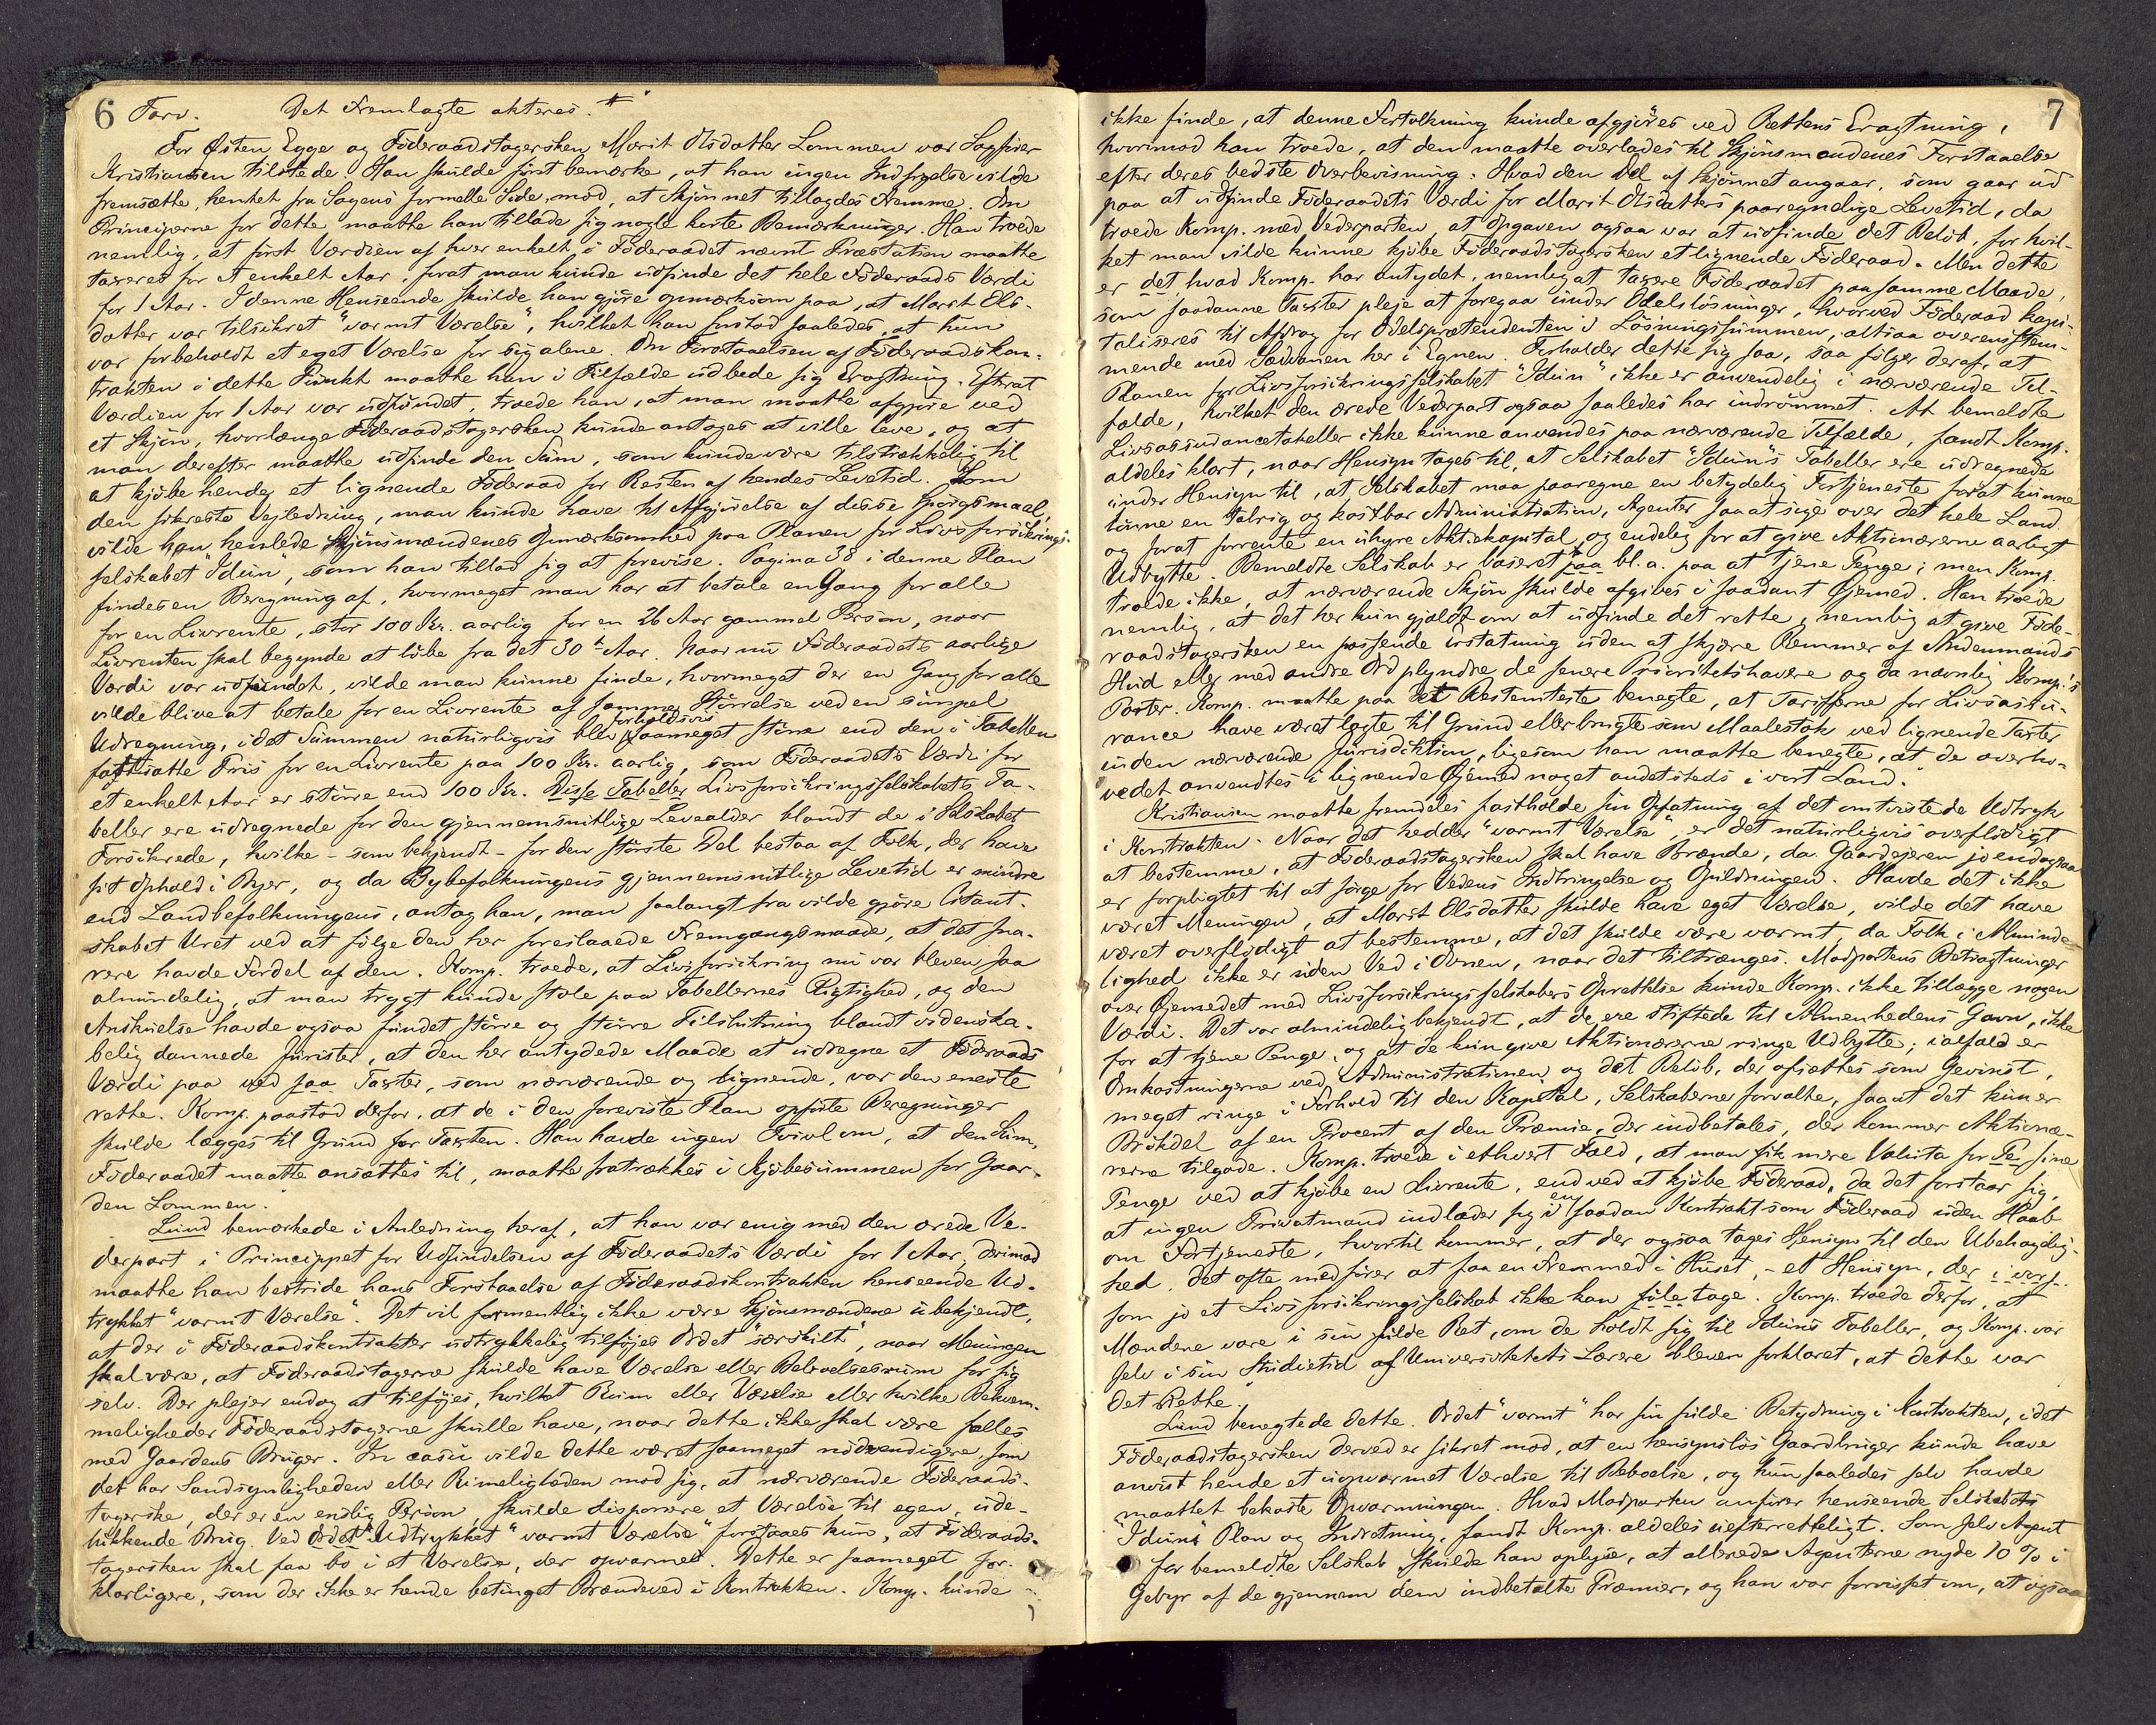 6 Forv. Det Fremlagte akteres. #
For Østen Egge og Föderaadstagersken Marit Olsdatter Lommen var Sagfører
Kristiansen tilstede. Han skulde först bemærke, at han ingen Indsigelse vilde
fremsætte, hentet fra Sagens formelle Side, mod, at Skjönnet tillagdes Fremme. Om
Principerne for dette maatte han tillade sig nogle korte Bemærkninger. Han troede
nemlig, at först Værdien af hver enkelt i Föderaadet nævnt Præstation maatte
taxeres for et enkelt Aar, forat man kunde udfinde det hele Föderaads Værdi
for 1 Aar. I denne Henseende skulde han gjöre opmærksom paa, at Marit Ols-
datter var tilsikret "varmt Værelse", hvilket han forstod saaledes, at hun
var forbeholdt et eget Værelse for sig alene. Om Forstaaelsen af Föderaadskon-
trakten i dette Punkt maatte han i Tilfælde udbede sig Eragtning. Efterat
Værdien for 1 Aar var udfundet, troede han, at man maatte afgjøre ved
et Skjön, hvorlænge Föderaadstagersken kunde antages at ville leve, og at
man derefter maatte udfinde den Sum, som kunde være tilstrækkelig til
at kjöbe hende et lignende Föderaad for Resten af hendes Levetid. Som
den sikreste Vejledning, man kunde have til Afgjörelse af disse Spörgsmaal,
vilde han henlede Skjönsmændenes Opmærksomhed paa Planen for Livsforsikrings-
selskabet "Idun", som han tillod sig at forevise. Pagina 38 i denne Plan
findes en Beregning af, hvormeget man har at betale en Gang for alle
for en Livrente, stor 100 Kr. aarlig for en 26 Aar gammel Person, naar
Livrenten skal begynde at löbe fra det 30te Aar. Naar nu Föderaadets aarlige
Værdi var udfundet, vilde man kunne finde, hvormeget der en Gang for alle
vilde blive at betale for en Livrente af samme Störrelse ved en simpel
Udregning, idet Summen naturligvis blev forholdsvis saameget större end den i Tabellen
fastsatte Pris for en Livrente paa 100 Kr. aarlig, som Föderaadets Værdi for
et enkelt Aar er större end 100 Kr. Disse Tabeller, Livsforsikringsselskabets Ta-
beller ere udregnede for den gjennemsnitlige Levealder blandt de i Selskabet
Forsikrede, hvilke – som bekjendt – for den störste Del bestaa af Folk, der have
sit Ophold i Byer, og da Bybefolkningens gjennemsnitlige Levetid er mindre
end Landbefolkningens, antog han, man saalangt fra vilde gjöre Citant-
skabet Uret ved at fölge den her foreslaaede Fremgangsmaade, at det sna-
rere havde Fordel af den. Komp. troede, at Livsforsikring nu var bleven saa
almindelig, at man trygt kunde stole paa Tabellernes Rigtighed, og den
Anskuelse havde ogsaa fundet större og större Tilslutning blandt videnska-
belig dannede Jurister, at den her antydede Maade at udregne et Föderaads
Værdi paa ved saa Taxter, som nærværende og lignende, var den eneste
rette. Komp. paastod derfor, at de i den foreviste Plan opförte Beregninger
skulde lægges til Grund for Taxten. Han havde ingen Tvivl om, at den Sum,
Föderaadet maatte ansættes til, maatte fratrækkes i Kjöbesummen for Gaar-
den Lommen.
Lund bemærkede i Anledning heraf, at han var enig med den ærede Ve-
derpart i Princippet for Udfindelsen af Föderaadets Værdi for 1 Aar, derimod
maatte han bestride hans Forstaaelse af Föderaadskontrakten henseende Ud-
trykket "varmt Værelse". Det vil formentlig ikke være Skjönsmændene ubekjendt,
at der i Föderaadskontrakter udtrykkelig tilföjes Ordet "særskilt", naar Meningen
skal være, at Föderaadstagerne skulde have Værelse eller Beboelsesrum for sig
selv. Der plejer endog at tilföjes, hvilket Rum eller Værelse eller hvilke Bekvem-
meligheder Föderaadstagerne skulle have, naar dette ikke skal være fælles
med Gaardens Bruger. In casu vilde dette været saameget nödvendigere, som
det har Sandsynligheden eller Rimeligheden mod sig, at nærværende Föderaads-
tagerske, der er en enslig Person, skulde disponere et Værelse til egen, ude-
lukkende Brug. Ved Ordet Udtrykket "varmt Værelse" forstaaes kun, at Föderaads-
tagersken skal faa bo i et Værelse, der opvarmes. Dette er saameget for-
klarligere, som der ikke er hende betinget Brændeved i Kontrakten. Komp. kunde
7
ikke finde, at denne Fortolkning kunde afgjöres ved Rettens Eragtning,
hvorimod han troede, at den maatte overlades til Skjönsmændenes Forstaaelse
efter deres bedste Overbevisning. Hvad den Del af Skjönnet angaar, som gaar ud
paa at udfinde Föderaadets Værdi for Marit Olsdatters paaregnelige Levetid, da
troede Komp. med Vederparten, at Opgaven ogsaa var at udfinde det Belöb, for hvil-
ket man vilde kunne kjöbe Föderaadstagersken et lignende Föderaad. Men dette
er det hvad Komp. har antydet, nemlig at taxere Föderaadet paa samme Maade,
som saadanne Taxter pleje at foregaa under Odelslösninger, hvorved Föderaad kapi-
taliseres til Afdrag for Odelsprætendenten i Lösningssummen, altsaa overensstem-
mende med Sædvanen her i Egnen. Forholder dette sig saa, saa fölger deraf, at
Planen for Livsforsikringsselskabet "Idun" ikke er anvendelig i nærværende Til-
fælde, hvilket den ærede Vederpart ogsaa saaledes har indrömmet. At bemeldte
Livsassurancetabeller ikke kunne anvendes paa nærværende Tilfælde, fandt Komp.
aldeles klart, naar Hensyn tages til, at Selskabet "Idun"s Tabeller ere udregnede
under Hensyn til, at Selskabet maa paaregne en betydelig Fortjeneste forat kunne
lönne en talrig og kostbar Administration, Agenter saaatsige over det hele Land
og forat forrente en uhyre Aktiekapital og endelig for at give Aktionærerne aarligt
Udbytte. Bemeldte Selskab er baseret paa bl. a. paa at tjene Penge; men Komp.
troede ikke, at nærværende Skjön skulde afgives i saadant Øjemed. Han troede
nemlig, at det her kun gjaldt om at udfinde det rette, nemlig at give Föde-
raadstagersken en passende Erstatning uden at skjære Remmer af Andenmands
Hud eller med andre Ord plyndre de senere Prioritetshavere og da navnlig Komp.'s
Parter. Komp. maatte paa det Bestemteste benegte, at Tarifferne for Livsassu-
rance have været lagte til Grund eller brugte som Maalestok ved lignende Taxter
inden nærværende Jurisdiktion, ligesom han maatte benegte, at de overho-
vedet anvendtes i lignende Øjemed noget andetsteds i vort Land.
Kristiansen maatte fremdeles fastholde sin Opfatning af det omtvistede Udtryk
i Kontrakten. Naar det hedder "varmt Værelse", er det naturligvis overflödigt
at bestemme, at Föderaadstagersken skal have Brænde, da Gaardejeren jo endogsaa
er forpligtet til at sörge for Vedens Indbringelse og Opildningen. Havde det ikke
været Meningen, at Marit Olsdatter skulde have eget Værelse, vilde det have
været overflödigt at bestemme, at det skulde være varmt, da Folk i Alminde-
lighed ikke er uden Ved i Ovnen, naar det tiltrænges. Modpartens Betragtninger
over Øjemedet med Livsforsikringsselskabers Oprettelse kunde Komp. ikke tillægge nogen
Værdi. Det var almindelig bekjendt, at de ere stiftede til Almenhedens Gavn, ikke
for at tjene Penge, og at de kun give Aktionærerne ringe Udbytte; ialfald er
Omkostningerne ved Administrationen og det Belöb, der afsættes som Gevinst,
meget ringe i Forhold til den Kapital, Selskaberne forvalte, saaat det kun er
Brökdel af en Procent af den Præmie, der indbetales, der kommer Aktionæ-
rerne tilgode. Komp. troede i ethvert Fald, at man fik mere Valuta for Pe sine
Penge ved at kjöbe en Livrente, end ved at kjöbe Föderaad, da det forstaar sig,
at ingen Privatmand indlader sig i en saadan Kontrakt som Föderaad uden Haab
om Fortjeneste, hvortil kommer, at der ogsaa tages Hensyn til den Ubehagelig-
hed, det ofte medförer at faa en Fremmed i Huset, – et Hensyn, der
som jo et Livsforsikringsselskab ikke kan föle tage. Komp. troede derfor, at
Mændene vare i sin fulde Ret, om de holdt sig til Iduns Tabeller, og Komp. var
selv i sin Studietid af Universitetets Lærere bleven forklaret, at dette var
det Rette.
Lund benegtede dette. Ordet "varmt" har sin fulde Betydning i Kontrakten, idet
Föderaadstagersken derved er sikret mod, at en hensynslös Gaardbruger kunde have
anvist hende et uopvarmet Værelse til Beboelse, og hun saaledes selv havde
maattet bekoste Opvarmningen. Hvad Modparten anförer henseende Selskabets
Iduns Plan og Indretning, fandt Komp. aldeles uefterretteligt. Som selv Agent
for bemeldte Selskab skulde han oplyse, at allerede Agenterne nyde 10 % i
Gebyr af de gjennem dem indbetalte Præmier, og han var forvisset om, at ogsaa